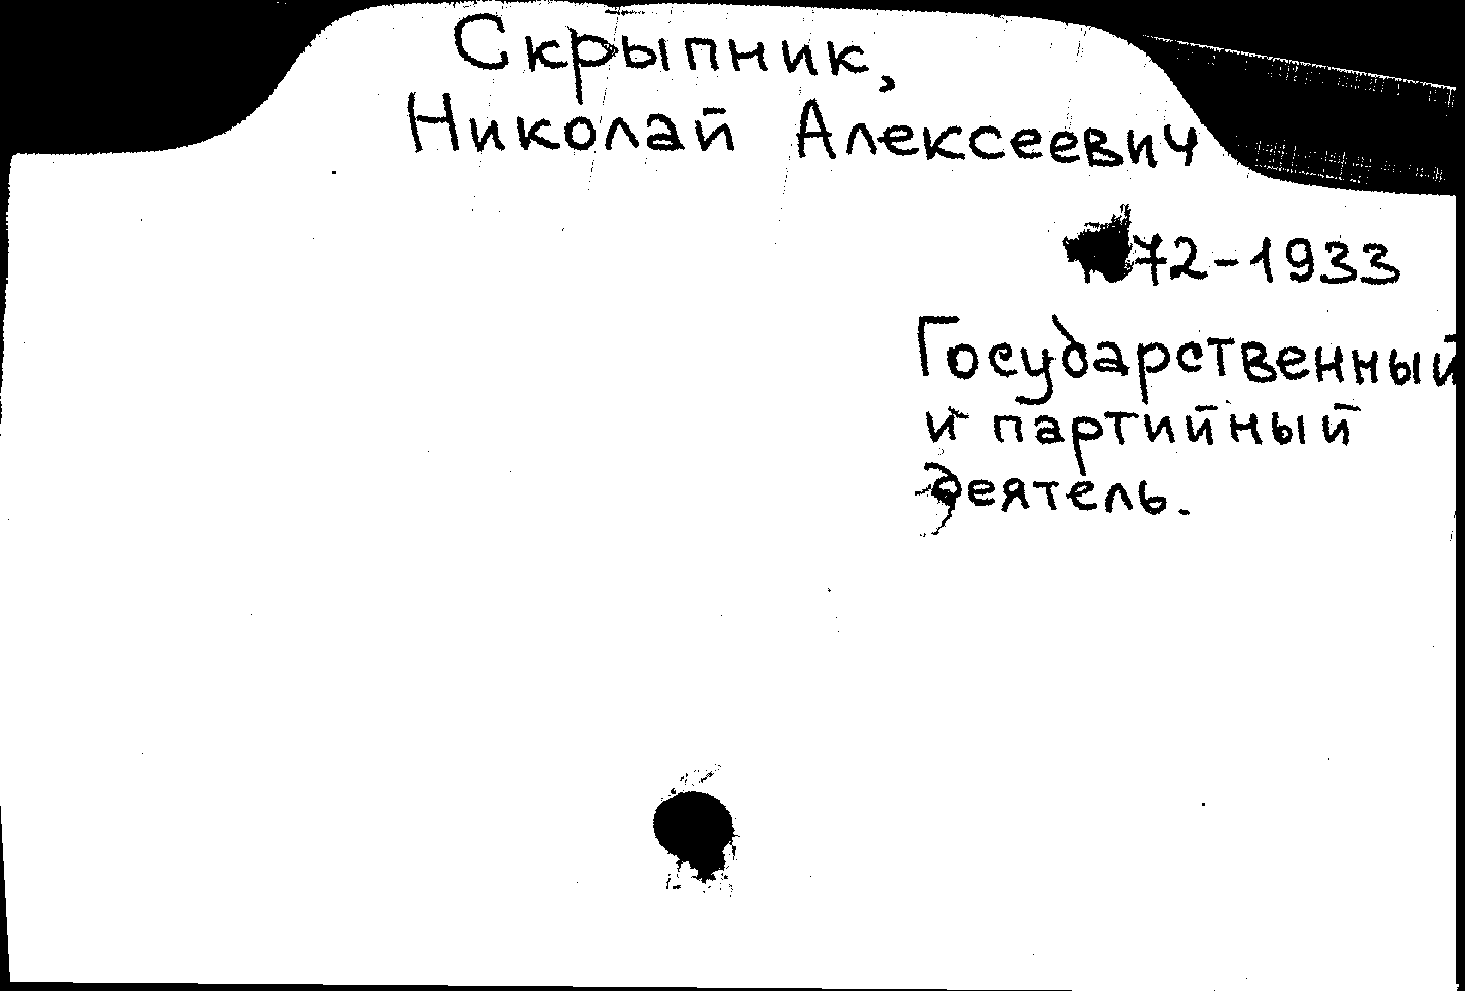 Скрыпник,
Николай Алексеевич
72-1933
Государственный
и партийный
деятель.